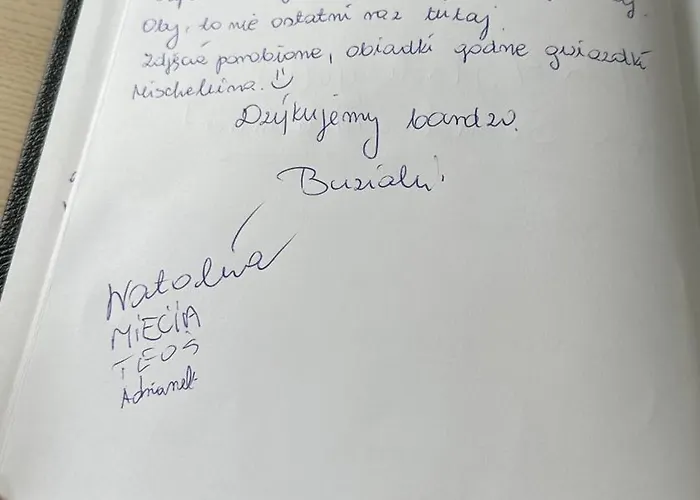 Oby, to nie ostatni raz tutaj.
Zdjęcie porobione, obiadki godne gwiazdki
Mischelina. :)
Dziękujemy bardzo.
Buziaki!
MIECIA
TEOŚ
Adrianek